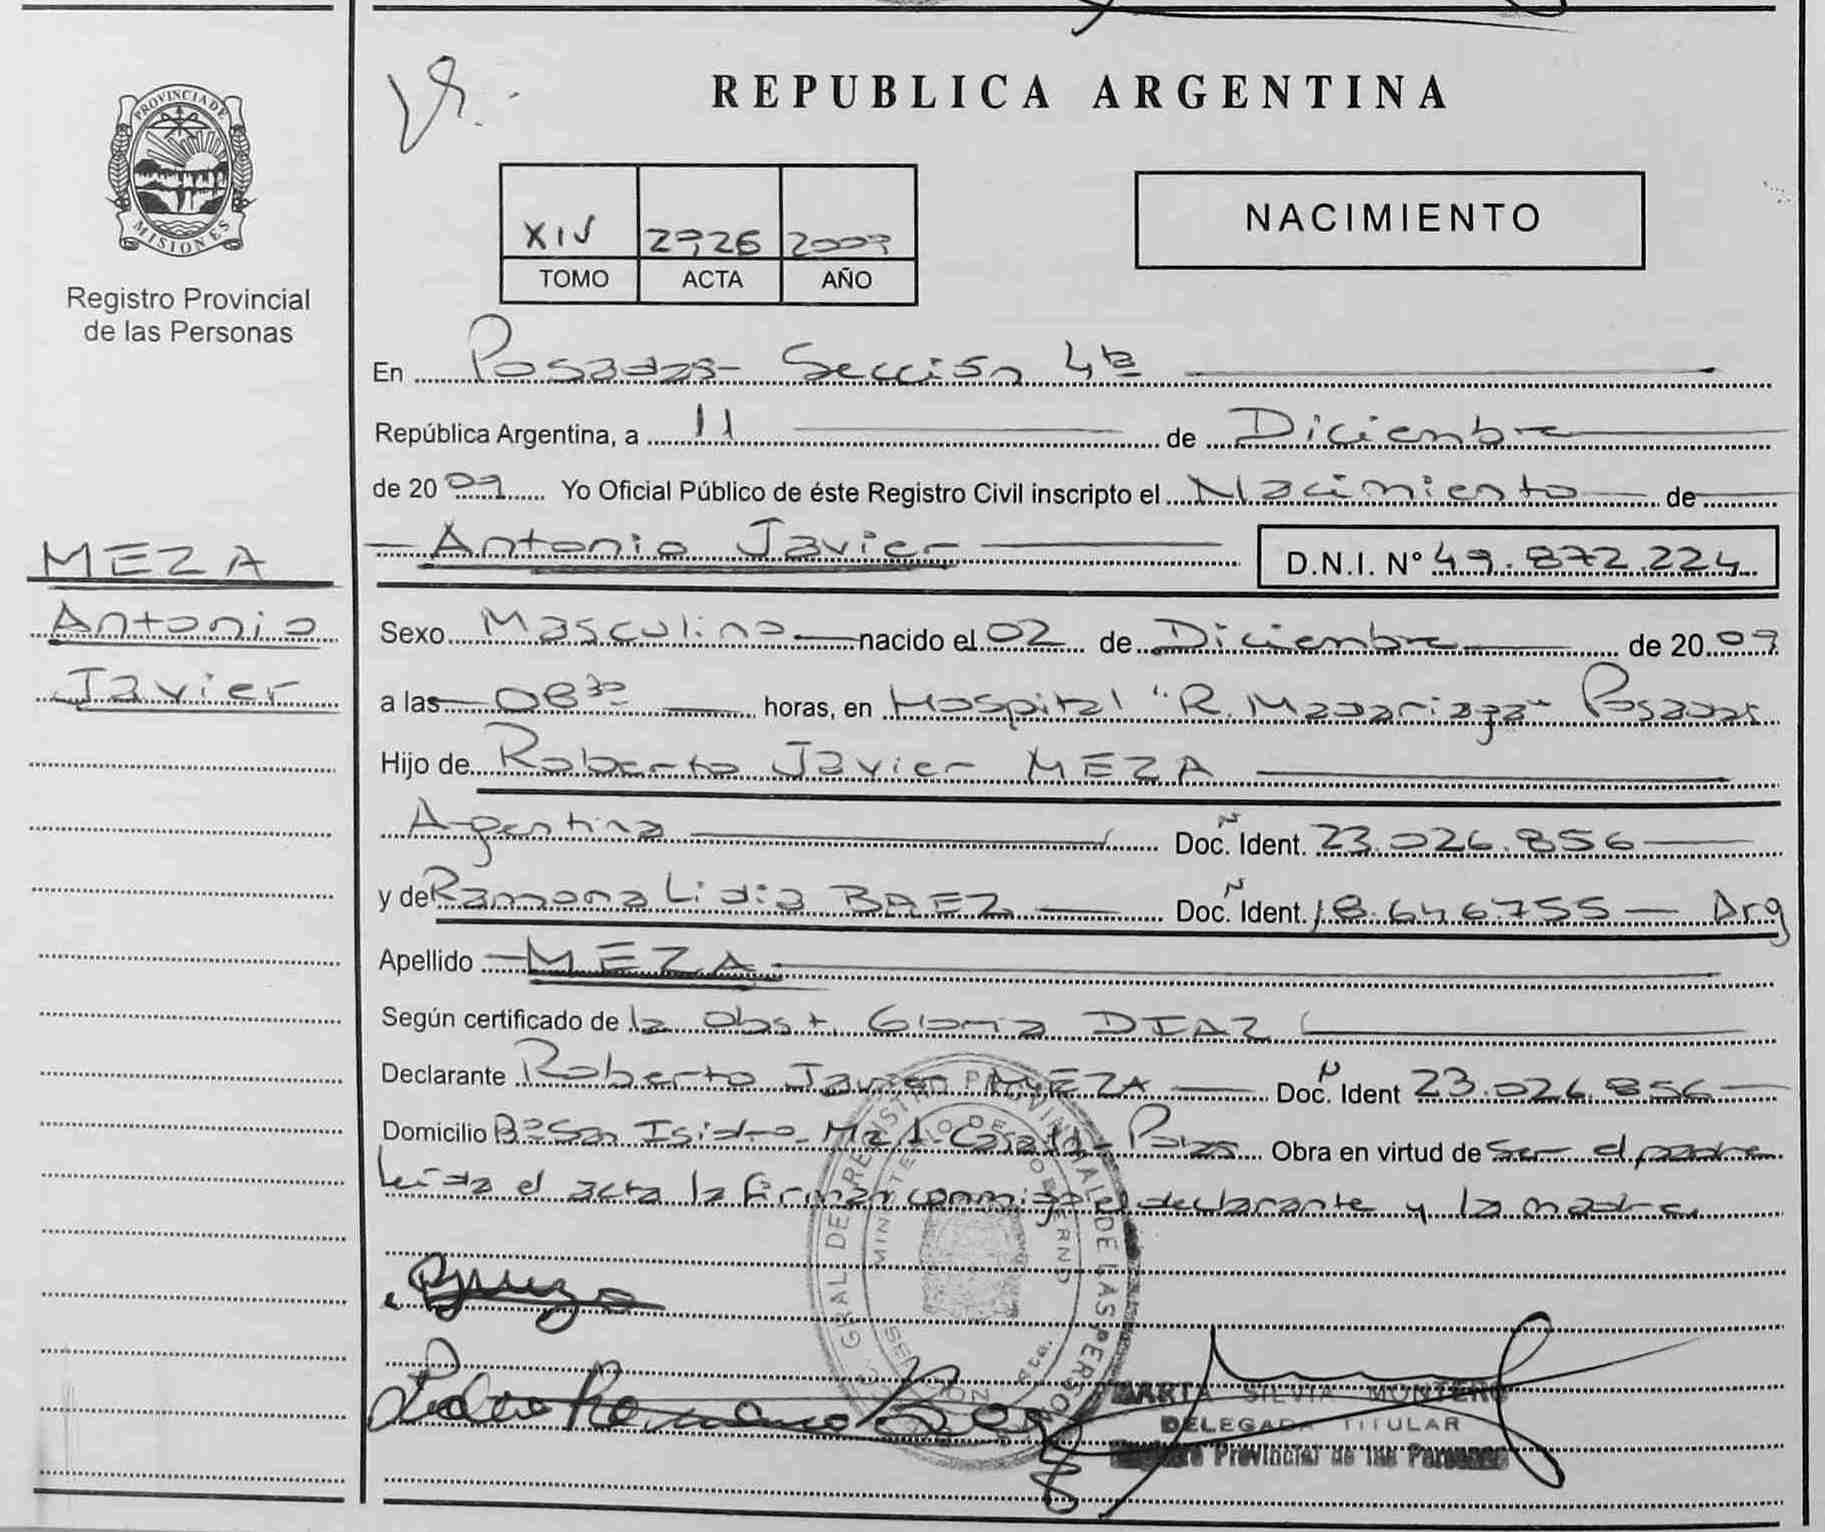 PROVINCIA DE
MISIONES
Registro Provincial
de las Personas
MEZA
Antonio
Javier
REPUBLICA ARGENTINA
NACIMIENTO
XIV 2926 2009
TOMO ACTA AÑO
En Posadas - Sección 4ta
República Argentina, a 11 de Diciembre
de 2009 Yo Oficial Público de éste Registro Civil inscripto el Nacimiento de
Antonio Javier D.N.I. N° 49.872.224
Sexo Masculino nacido el 02 de Diciembre de 2009
a las 08³⁰ horas, en Hospital "R. Madariaga" Posadas
Hijo de Roberto Javier MEZA
Argentina Doc. N Ident. 23.026.856
y de Ramona Lidia BAEZ Doc. N Ident. 18.646.755 - Arg
Apellido MEZA
Según certificado de la Obst. Gloria DIAZ
Declarante Roberto Javier MEZA Doc. N Ident 23.026.856
Domicilio Bº San Isidro - Mz 1 - Casa - Pdas Obra en virtud de ser el padre
Leída el acta la firman conmigo el declarante y la madre.
GRAL DEL REGISTRO PROVINCIAL DE LAS PERSONAS
MINISTERIO DE GOBIERNO
MARTA SILVIA MONTERO
DELEGADA TITULAR
Registro Provincial de las Personas